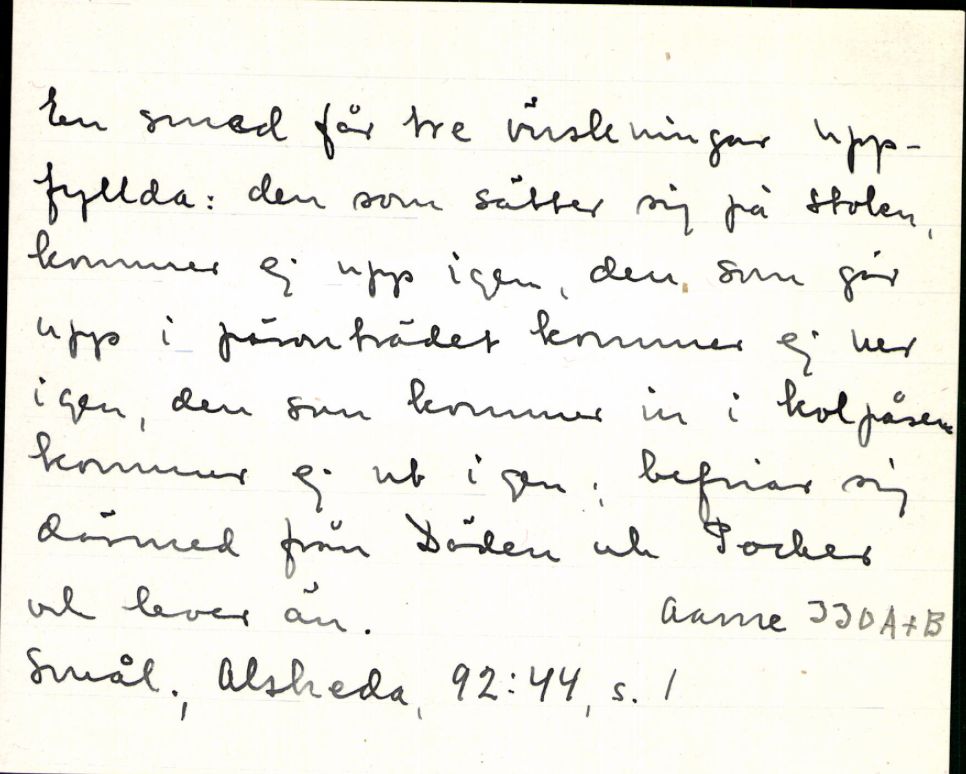 En smed får tre önskningar upp-
fyllda: den som sätter sig på stolen,
kommer ej upp igen, den som går
upp i päronträdet kommer ej ner
igen, den som kommer in i kolpåsen
kommer ej ut igen; befriar sig
därmed från Döden och Pocker
och lever än.
Aarne 330A+B
Smål., Alsheda, 92:44, s. 1